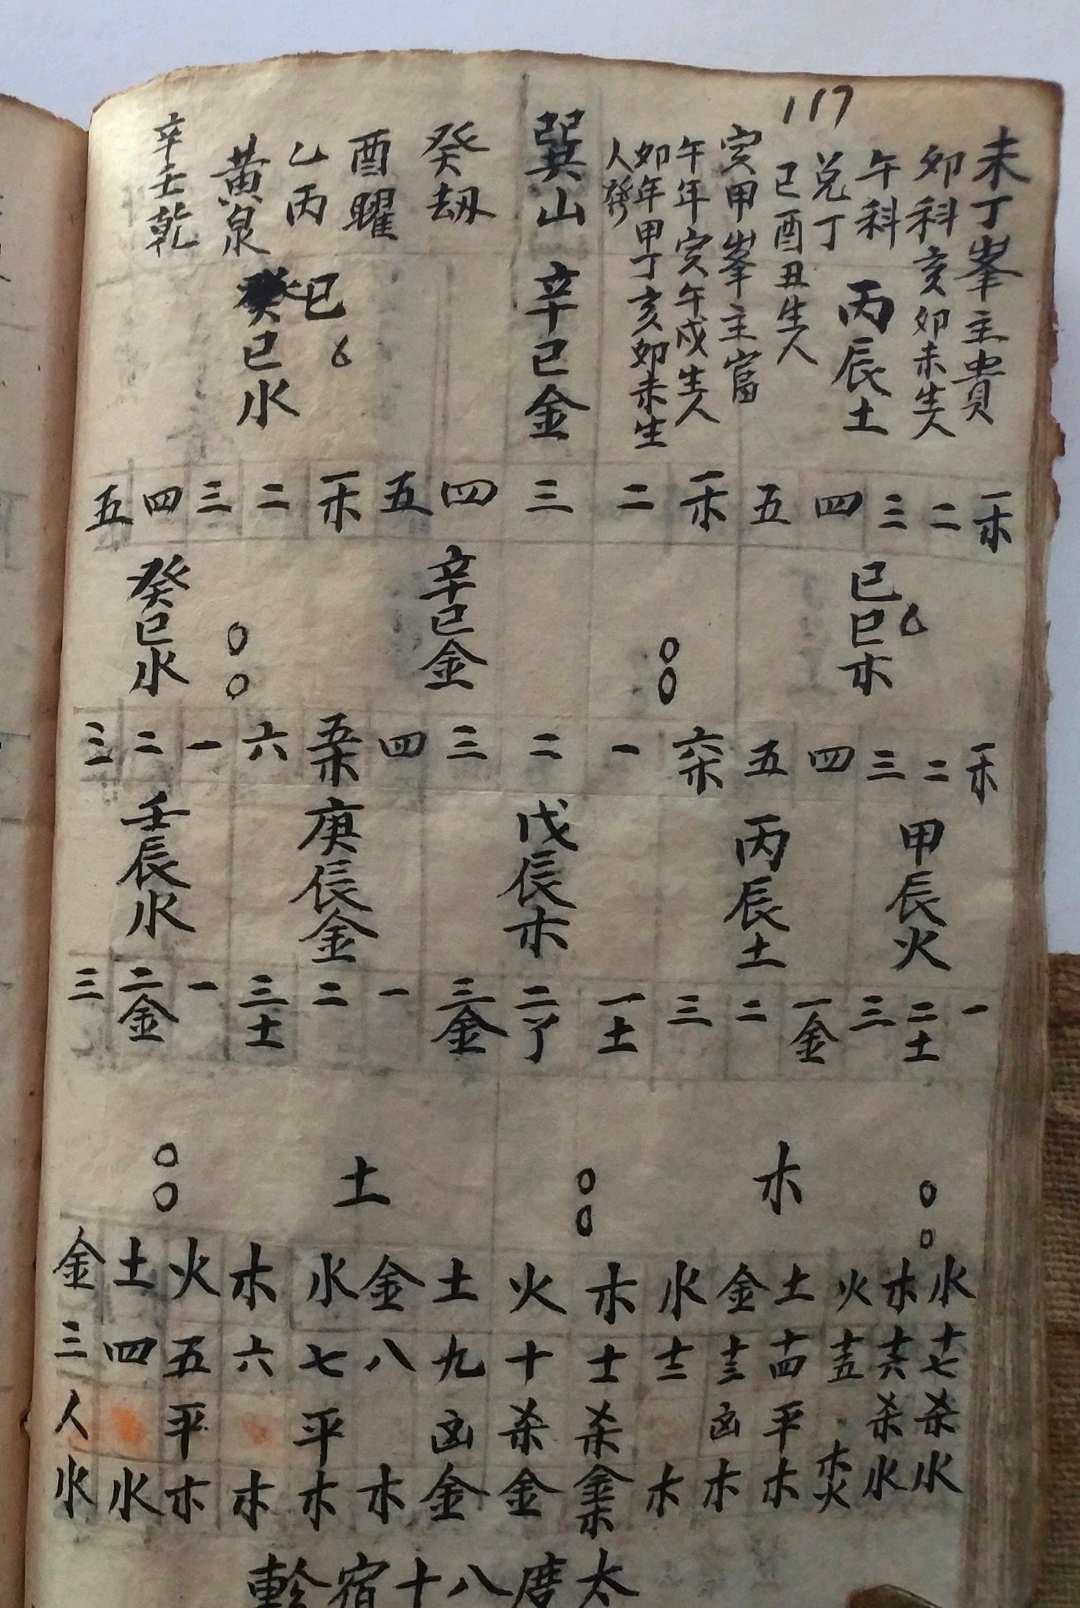 117
未丁峯主貴
卯科亥卯未生人
午科
丙辰土
兌丁
巳酉丑生人
寅甲峯主富
午年寅午戌生人
卯年甲丁亥卯未生
人發
巽山
辛巳金
癸劫
酉曜
乙丙
巳
黃泉
癸巳水
辛壬乾
一木 二 三 四 五 一木 二 三 四 五 一木 二 三 四 五
己巳木
辛巳金
癸巳水
一木 二 三 四 五 六木 一 二 三 四 五木 六 一 二 三
甲辰火
丙辰土
戊辰木
庚辰金
壬辰水
一 二土 三 一金 二 三 一土 二了 三金 一 二 三土 一 二金 三
木
土
水 木 火 土 金 水 木 火 土 金 水 木 火 土 金
十七 十六 十五 十四 十三 十二 十一 十 九 八 七 六 五 四 三
杀 杀 平 凶 杀 杀 凶 平 平 人
水 水 木火 木 木 木 金木 金 金 木 木 木 木 水 水
太度八十宿軫